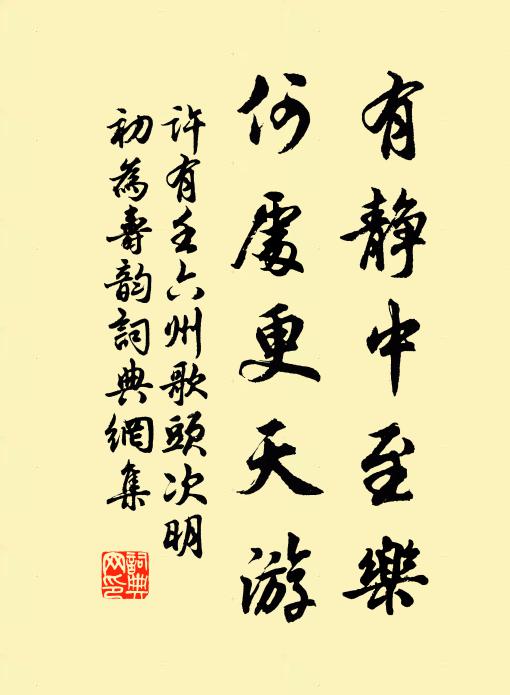 有靜中至樂
何處更天游
許有壬六州歌頭次明
初為壽韵詞典網集
詞典
网印